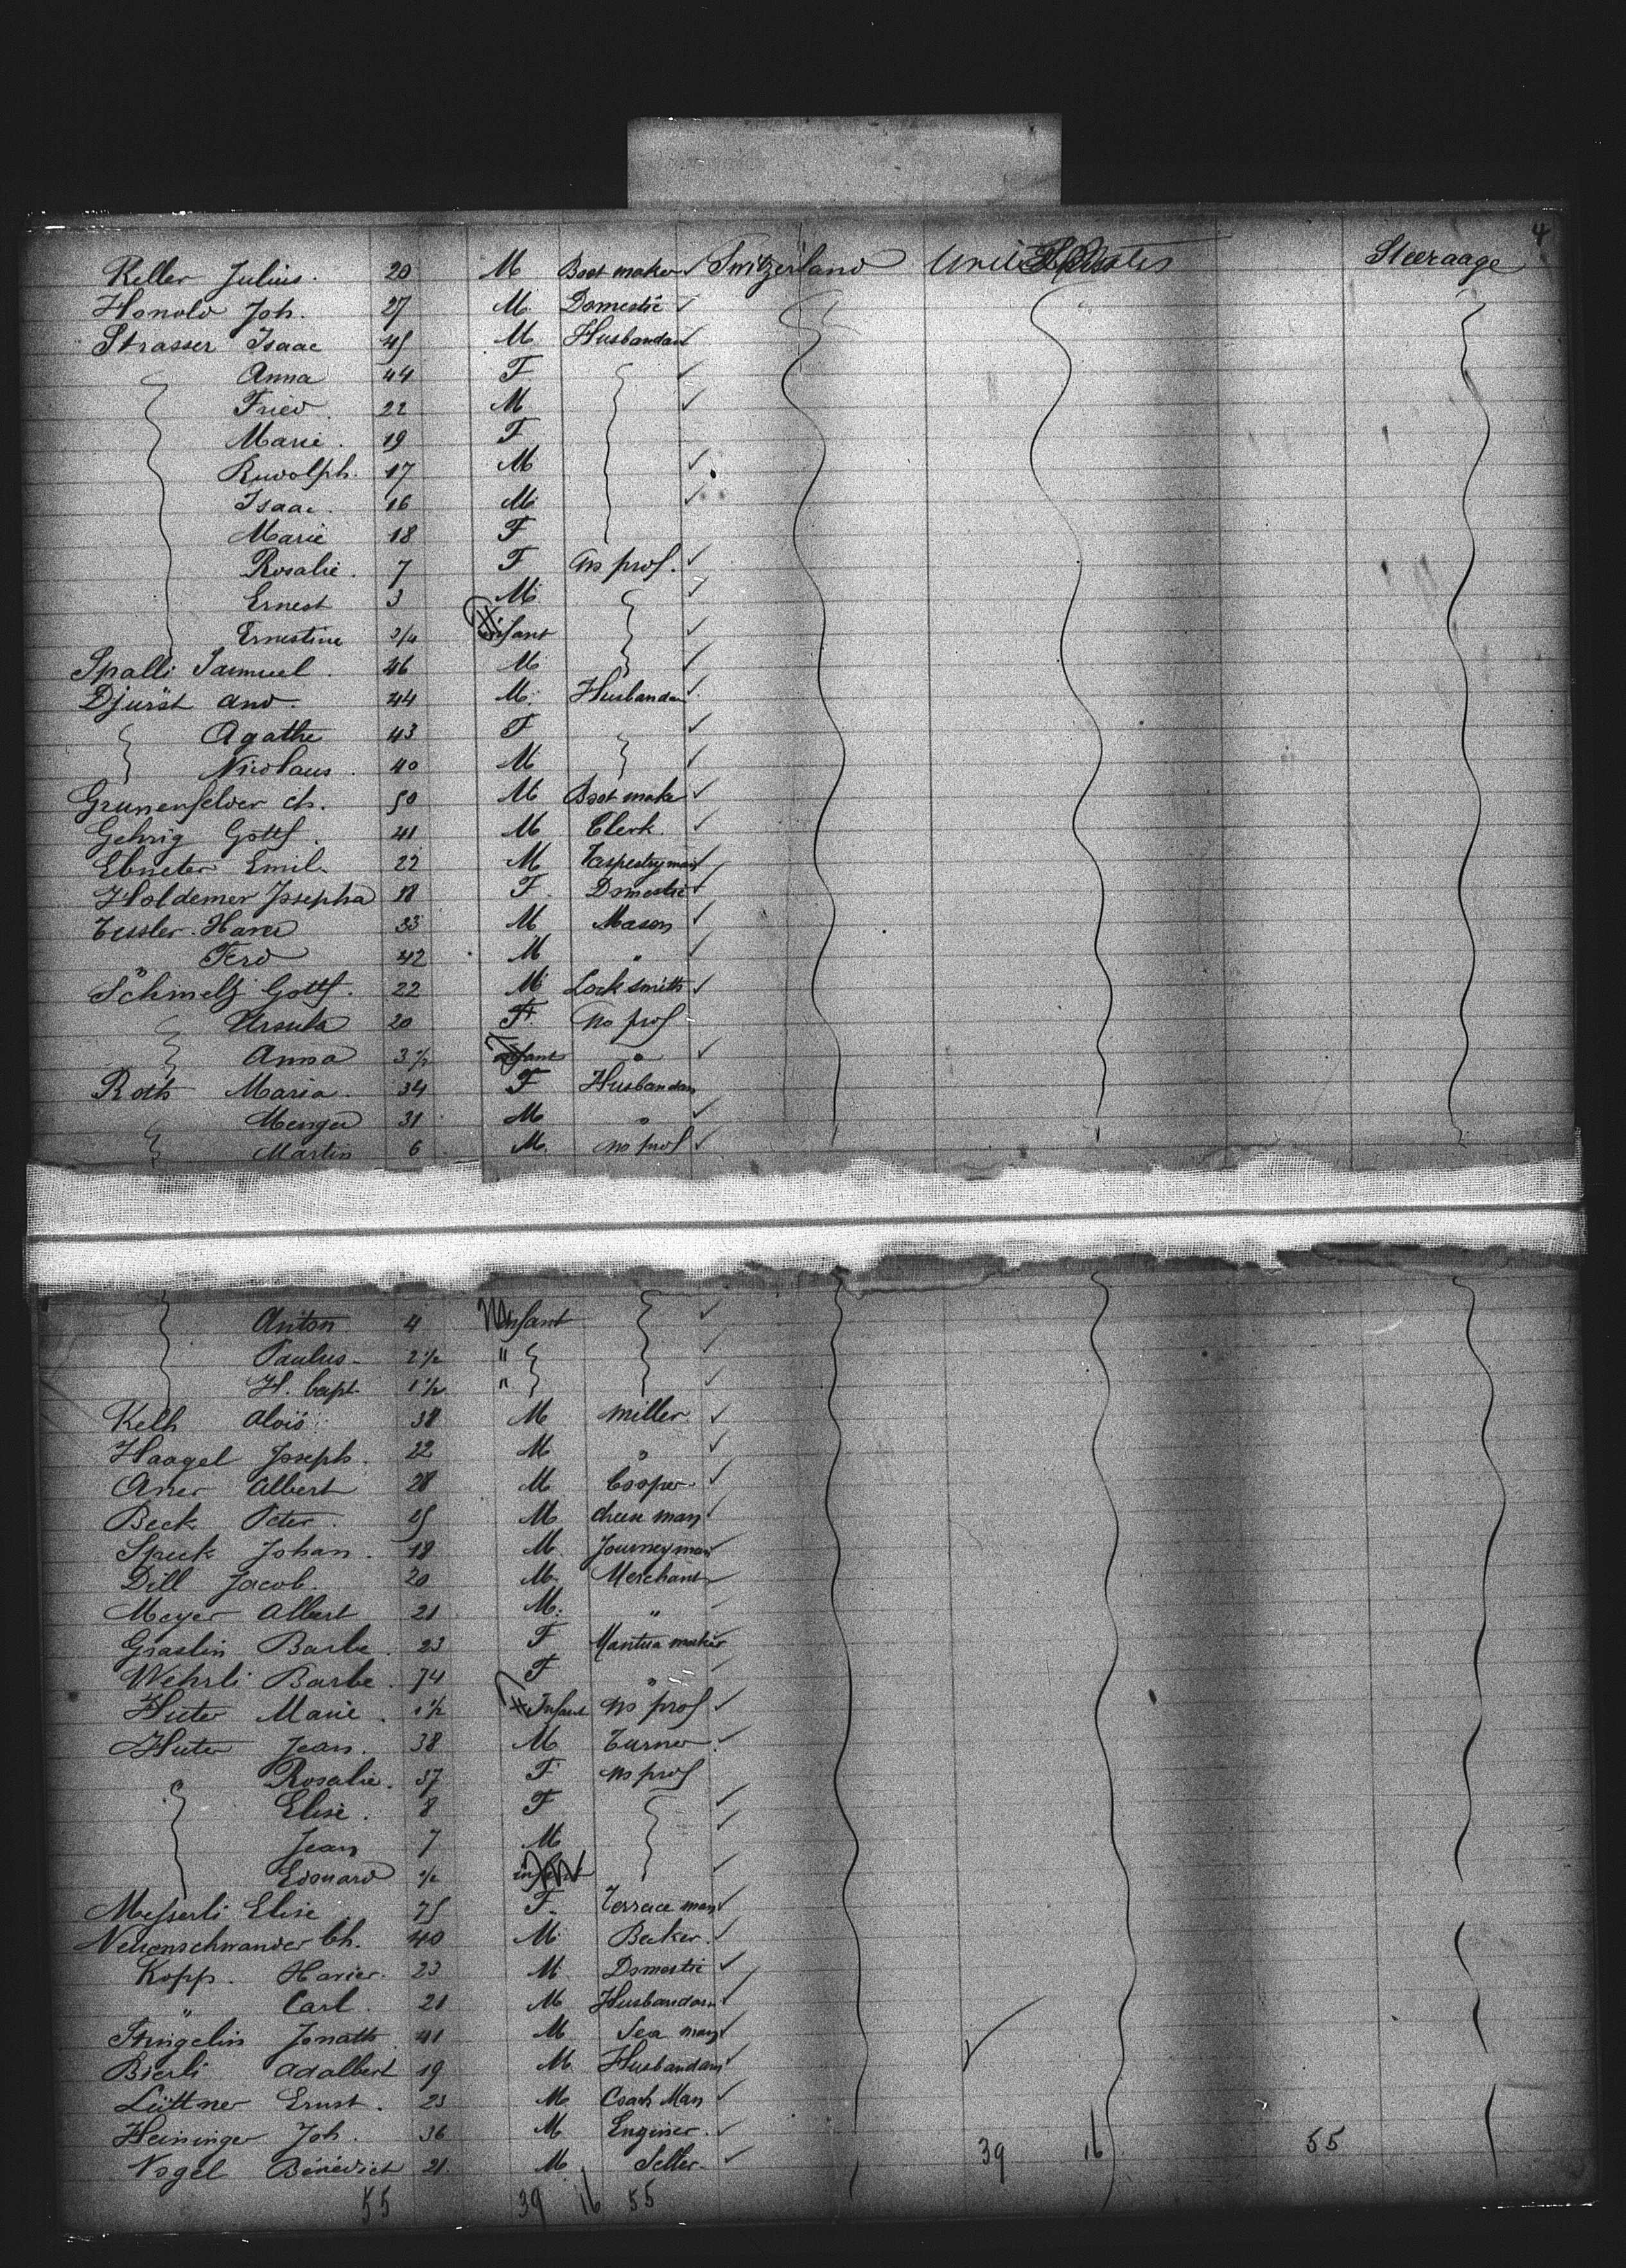 4
Keller Julius. 20 M Boot maker ✓ Switzerland United States Steeraage
Honold Joh. 27 M Domestic ✓
Strasser Isaac 45 M Husbandan
Anna 44 F ✓
Fried. 22 M ✓
Marie. 19 F
Rudolph. 17 M ✓
Isaac. 16 M ✓
Marie 18 F
Rosalie. 7 F no prof. ✓
Ernest 3 M ✓
Ernestine 3/4 infant ✓
Spalli Samuel. 46 M ✓
Djurst And. 44 M. Husbandan ✓
Agathe 43 F ✓
Nicolaus. 40 M ✓
Grunenfelder Ch. 50 M Boot make ✓
Gehrig Gottf. 41 M Clerk. ✓
Ebneter Emil. 22 M Taspestryman ✓
Holdemer Josepha 18 F. Domestic ✓
Tussler Haver 33 M Mason ✓
" Ferd 42 M " ✓
Schmelz Gottf. 22 M Lock smith ✓
Ursula 20 F. no prof
Anna 3 1/2 infant " ✓
Roth Maria. 34 F Husbandan
31 M " ✓
Martin 6 M. no prof ✓
Anton 4 Infant ✓
Paulus. 2 1/2 " ✓
H. bapt. 1 1/2 " ✓
Kelh Alois 38 M miller ✓
Haagel Joseph. 22 M " ✓
Aner Albert 28 M Cooper. ✓
Beck Peter. 25 M cheese man ✓
Speck Johan. 18 M. Journeyman ✓
Dill Jacob. 20 M. Merchant ✓
Meyer Albert 21 M. " ✓
Graslin Barbe. 23 F Mantua maker
Wehrli Barbe. 74 F " ✓
Huter Marie. 1 1/2 Infant no prof ✓
Huter Jean. 38 M Turner ✓
Rosalie. 37 F no prof
Elise. 8 F ✓
Jean 7 M ✓
Edouard 1/2 infant ✓
Messerli Elise 75 F. Terrace man ✓
Neuenschwander Ch. 40 M Baker. ✓
Kopp. Havier. 23 M. Domestic ✓
" Carl. 21 M Husbandan ✓
Stingelin Jonath. 41 M Sea man ✓
Bierli Adalbert 19 M. Husbandan ✓
Lüttner Ernst. 23 M Coach Man ✓
Heininger Joh. 36 M Enginer. ✓ 39 16 55
Vogel Bénédict 21. M. Seller. ✓
55 39 16 55